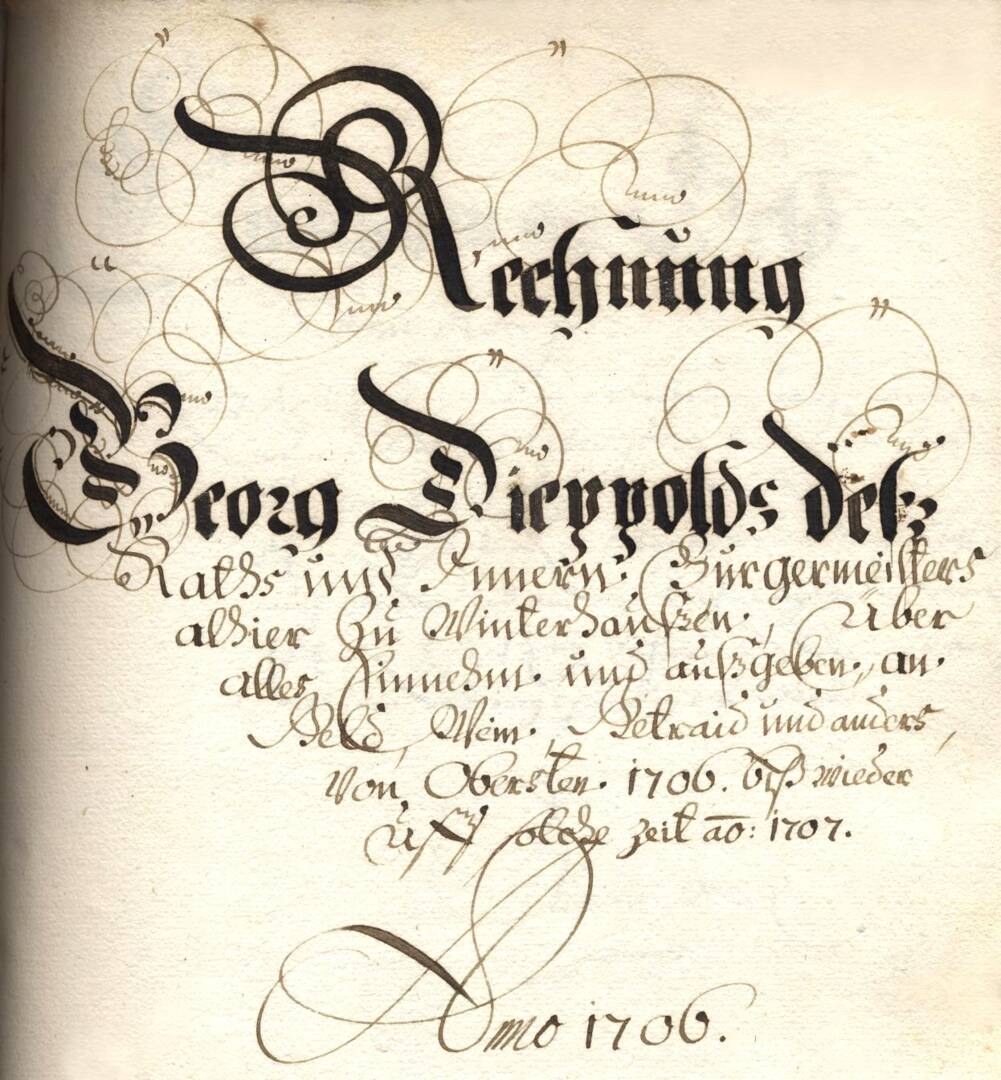 Rechnung
Georg Dieppolds deß
Raths und Innern Burgermeisters
alhier zu Winterhaußen, Über
alles Einnehm und außgeben, an
Geld, Wein, Getraid und anders,
Von Obersten 1706. biß wieder
uff solche zeit ao: 1707.
Anno 1706.